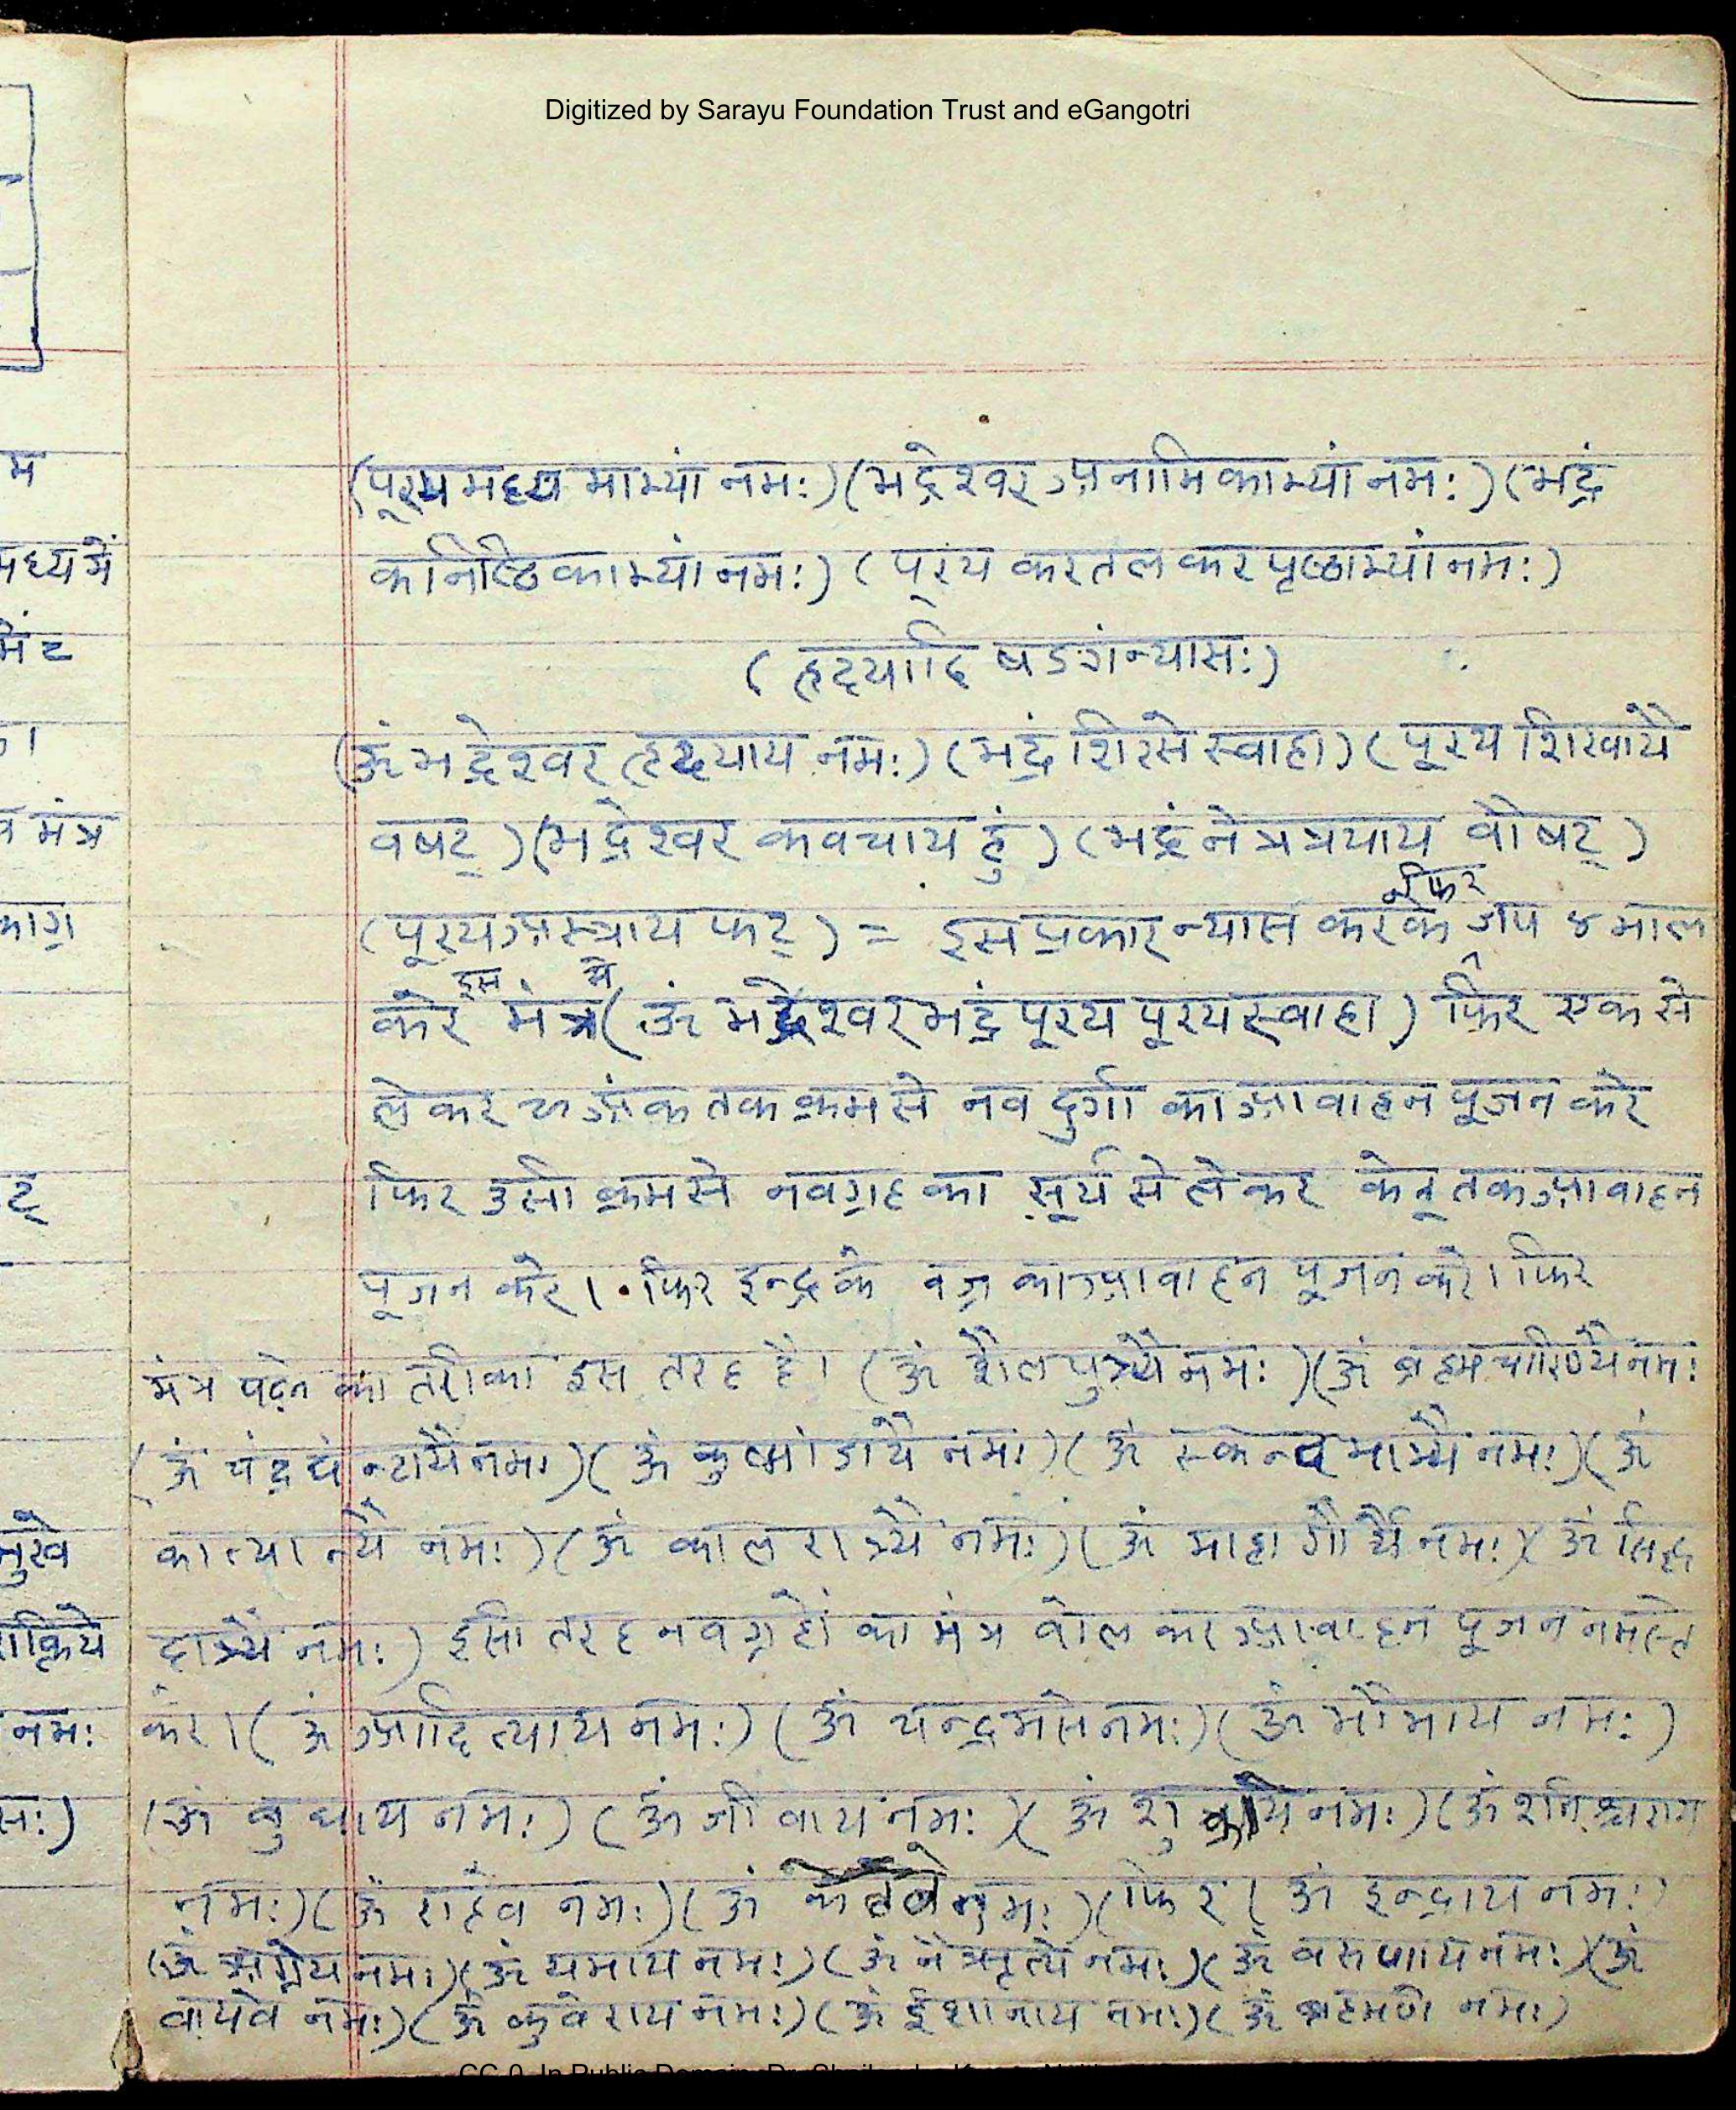 Digitized by Sarayu Foundation Trust and eGangotri
(पूरय मध्य माभ्यां नमः) (भद्रेश्वर अनामिकाभ्यां नमः) (भद्रं
कनिष्ठिकाभ्यां नमः) (पूरय करतल कर पृष्ठाभ्यां नमः)
(हृदयादि षडंगन्यासः)
(ॐ भद्रेश्वर हृदयाय नमः) (भद्रं शिरसे स्वाहा) (पूरय शिखायै
वषट्) (भद्रेश्वर कवचाय हुं) (भद्रं नेत्रत्रयाय वौषट्)
(पूरय अस्त्राय फट्) = इस प्रकार न्यास करके फिर जप ४ माल
करे इस मंत्र से (ॐ भद्रेश्वर भद्रं पूरय पूरय स्वाहा) फिर एक से
लेकर अंक तक क्रम से नव दुर्गा का आवाहन पूजन करे
फिर उसी क्रम से नवग्रह का सूर्य से लेकर केतू तक आवाहन
पूजन करे। फिर इन्द्र के वज्र का आवाहन पूजन करे। फिर
मंत्र पढ़ने का तरीका इस तरह है। (ॐ शैलपुत्र्यै नमः) (ॐ ब्रहम चारिण्यै नमः
(ॐ चंद्र घंन्टायै नमः) (ॐ कुष्मांडायै नमः) (ॐ स्कन्द मात्र्यै नमः) (ॐ
कात्यान्यै नमः) (ॐ काल रात्र्यै नमः) (ॐ माहा गौर्यै नमः) (ॐ सिद्ध
दात्र्यै नमः) इसी तरह नवग्रहों का मंत्र बोल कर आवाहन पूजन नमस्ते
करे। (ॐ आदित्याय नमः) (ॐ चन्द्रमसे नमः) (ॐ भौमाय नमः)
(ॐ बुधाय नमः) (ॐ जीवाय नमः) (ॐ शुक्राय नमः) (ॐ शनिश्चराय
नमः) (ॐ राहवे नमः) (ॐ केतवे नमः) (फिर (ॐ इन्द्राय नमः)
(ॐ अग्नेय नमः) (ॐ यमाय नमः) (ॐ नैऋत्ये नमः) (ॐ वरुणाय नमः) (ॐ
वायवे नमः) (ॐ कुवेराय नमः) (ॐ ईशानाय नमः) (ॐ ब्रहमणे नमः)